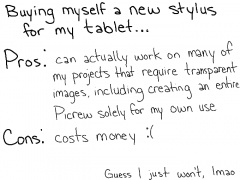 Buying myself a new stylus
for my tablet...
Pros: can actually work on many of
my projects that require transparent
images, including creating an entire
Picrew solely for my own use
Cons: costs money :(
Guess I just won't, lmao